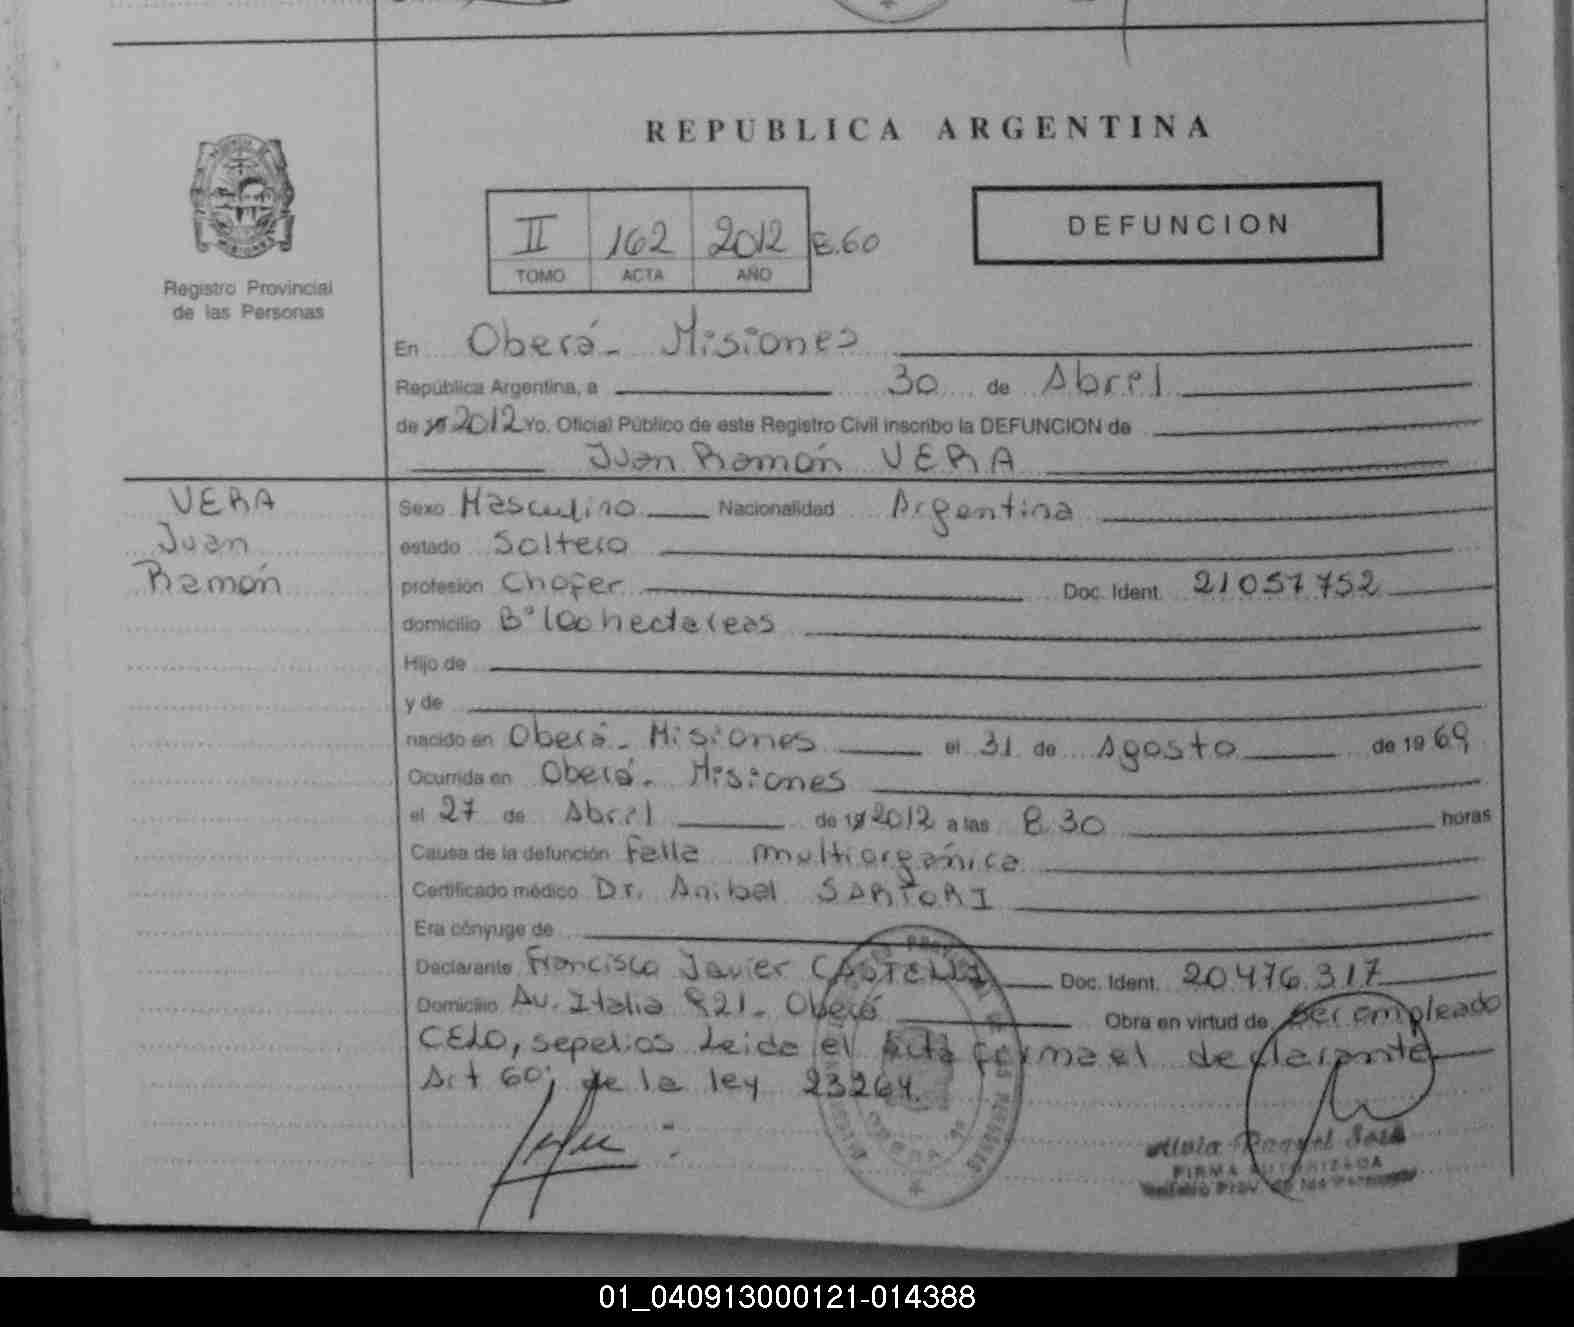 REPUBLICA ARGENTINA
Registro Provincial
de las Personas
II 162 2012 E.60
TOMO ACTA AÑO
DEFUNCION
En Oberá - Misiones
República Argentina, a 30 de Abril
de 2012 Yo, Oficial Público de este Registro Civil inscribo la DEFUNCION de
Juan Ramón VERA
VERA
Juan
Ramón
Sexo Masculino Nacionalidad Argentina
estado Soltero
profesión Chofer Doc. Ident. 21.057.752
domicilio B° 100 hectareas
Hijo de
y de
nacido en Oberá - Misiones el 31 de Agosto de 1969
Ocurrida en Oberá - Misiones
el 27 de Abril de 2012 a las 8.30 horas
Causa de la defunción Falla multiorgánica
Certificado médico Dr. Anibal SARTORI
Era cónyuge de
Declarante Francisco Javier Doc. Ident. 20.476.317
Domicilio Av. Italia 821 - Oberá Obra en virtud de ser empleado
CELO, sepelios Leida el Acta firma el declarante
Art 60, de la ley 23264.
FIRMA AUTORIZADA
01_040913000121-014388